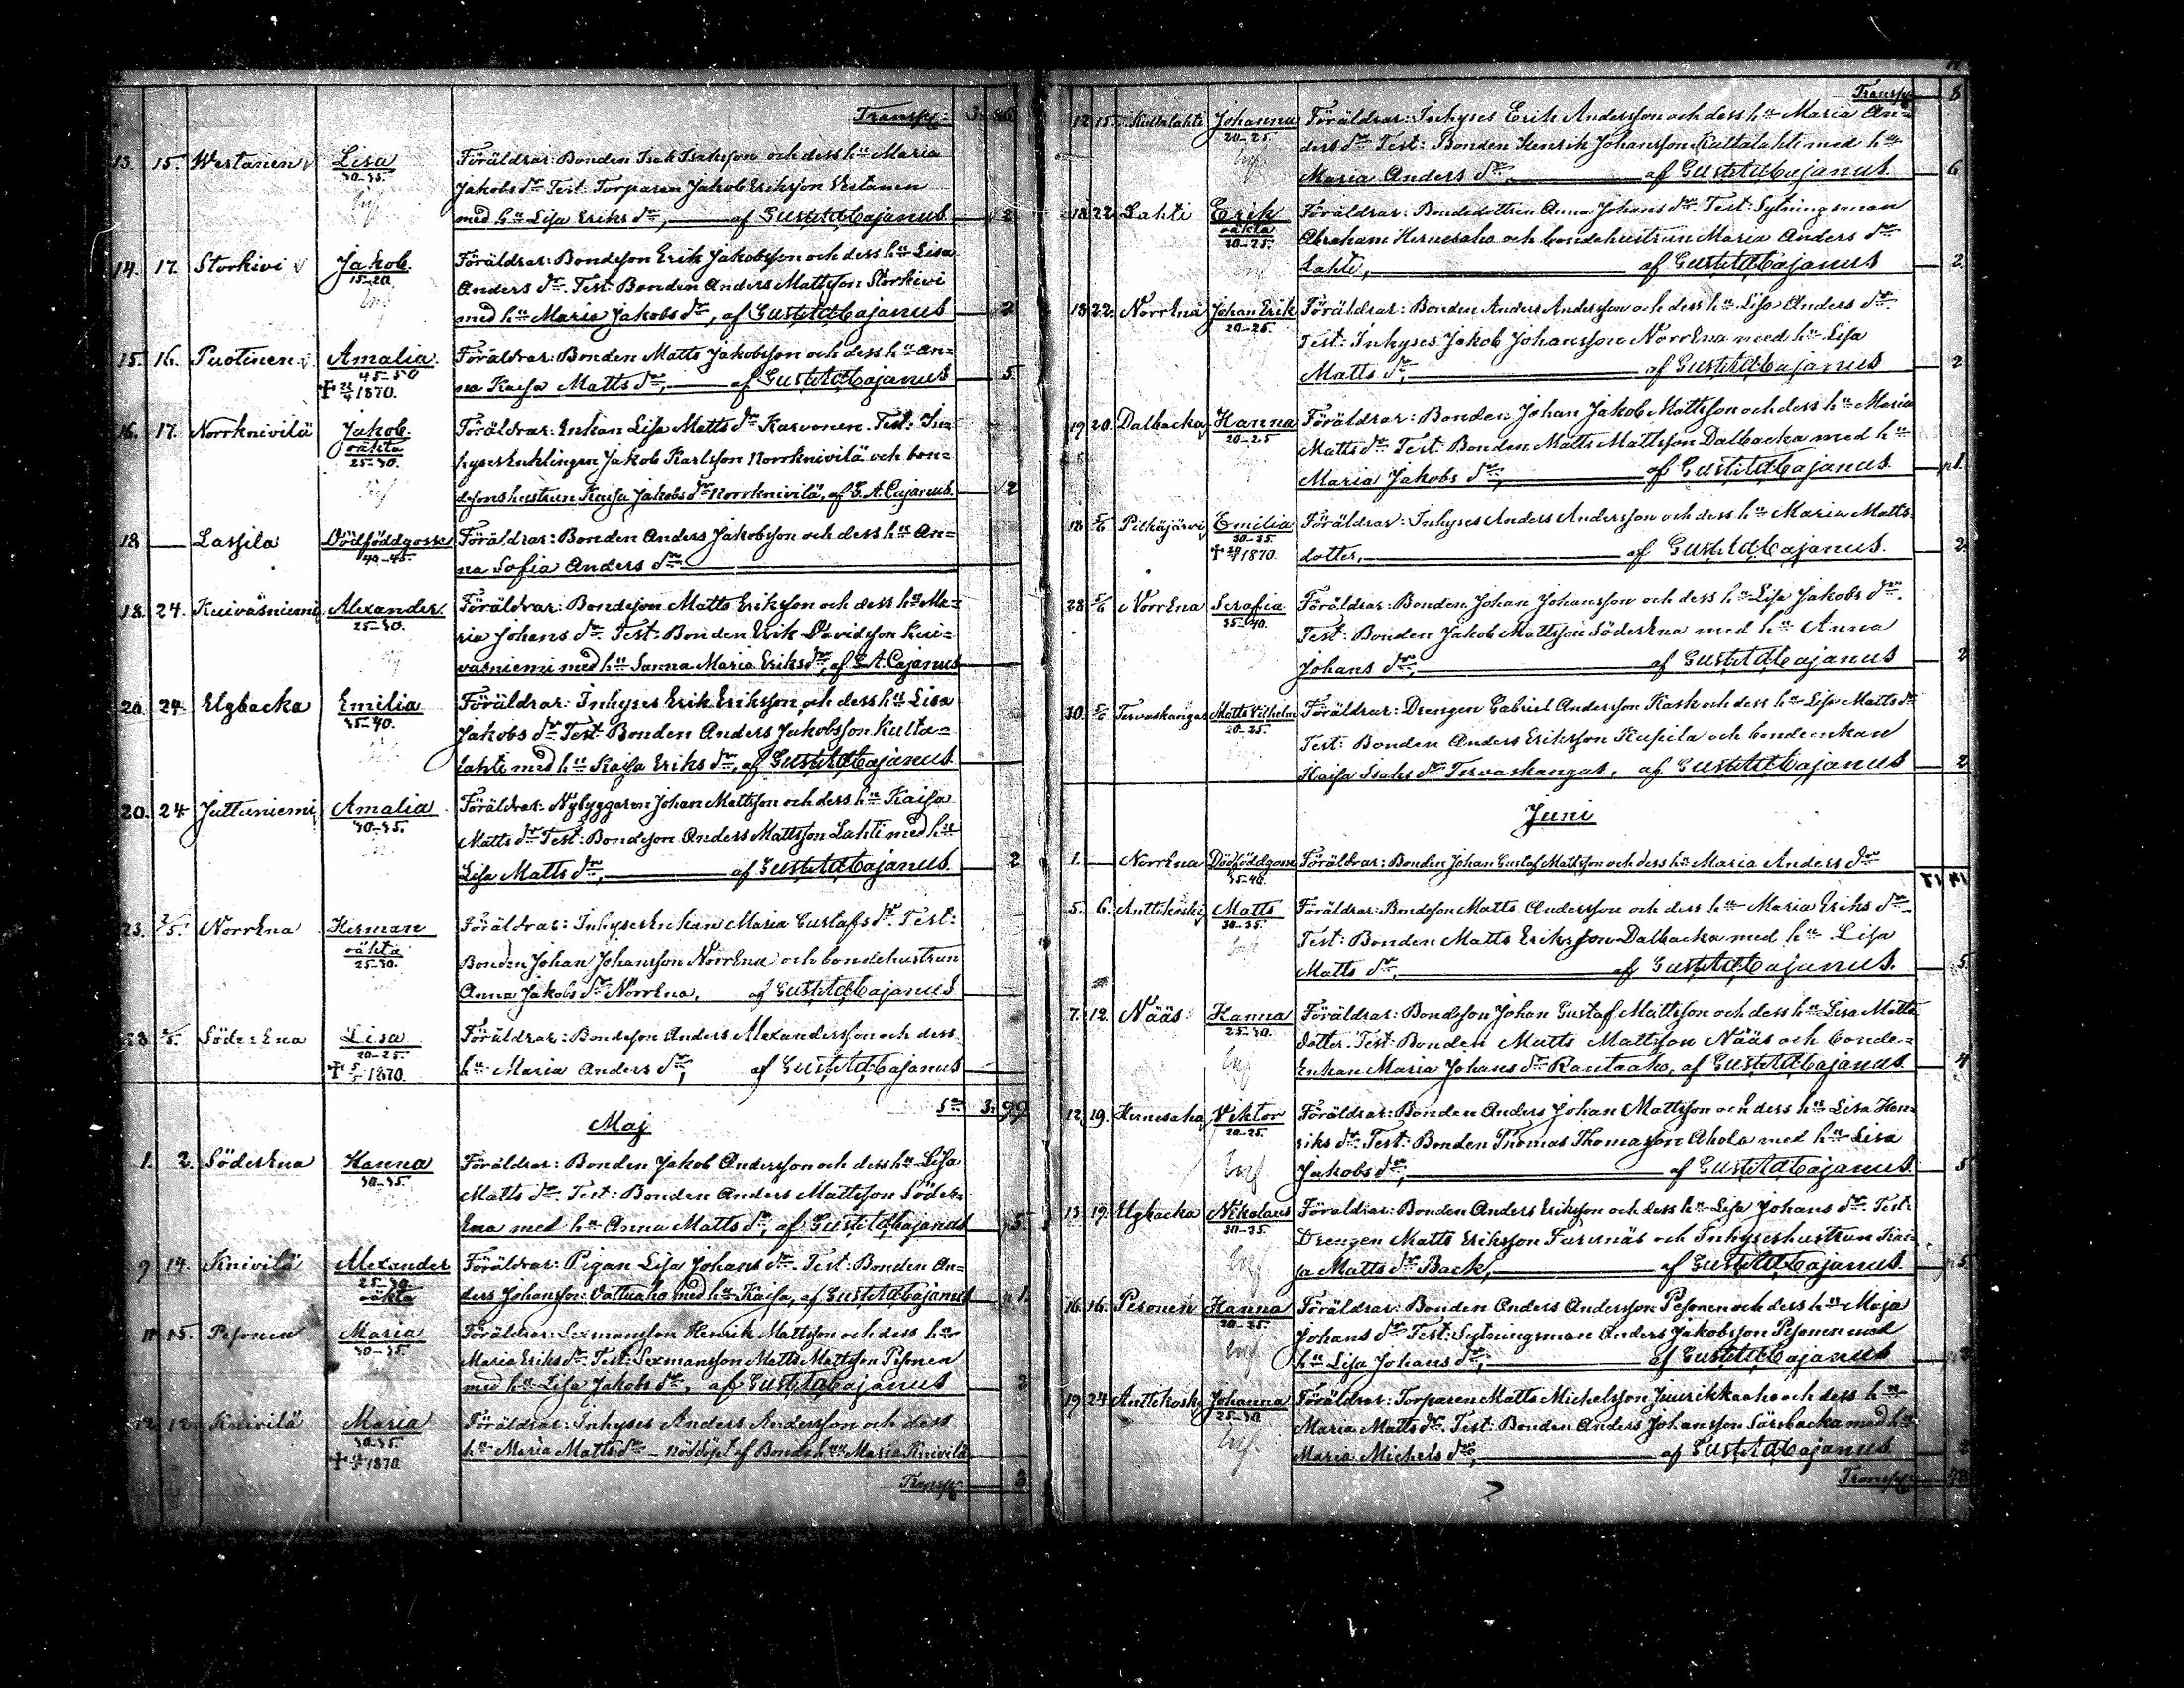 Transp: 3. 86
13. 15. Westanen Lisa Föräldrar: Bonden Isak Isaksson och dess hu Maria
30–35. Jakobs dr Test: Torparen Jakob Eriksson Vestanen
med hu Lisa Eriks dr, af Gust. Ad. Cajanus 2
14. 17. Storkivi Jakob. Föräldrar: Bondeson Erik Jakobsson och dess hu Lisa
15–20. Anders dr. Test: Bonden Anders Mattsson Storkivi
med hu Maria Jakobs dr, af Gust. Ad. Cajanus 2
15. 16. Puotinen Amalia. Föräldrar: Bonden Matts Jakobsson och dess hu An=
45–50 na Kaisa Matts dr, af Gust. Ad. Cajanus 5.
† 22/4 1870.
16. 17. Norrknivilä Jakob. Föräldrar: Enkan Lisa Matts dr Karvonen. Test: In=
oäkta hyses Enklingen Jakob Karlsson Norrknivilä och bon=
25–30. desonshustrun Kaisa Jakobs dr Norrknivilä, af G. A. Cajanus. 2
18 — Lassila Dödföddgosse Föräldrar: Bonden Anders Jakobsson och dess hu An=
40–45. na Sofia Anders dr
18. 24. Kuivasniemi Alexander. Föräldrar: Bondeson Matts Eriksson och dess hu Ma=
25–30. ria Johans dr Test: Bonden Erik Davidsson Kui=
vasniemi med hu Sanna Maria Eriks dr, af G. A. Cajanus
20. 24. Elgbacka Emilia Föräldrar: Inhyses Erik Eriksson och dess hu Lisa
35–40. Jakobs dr Test: Bonden Anders Jakobsson Kulta=
lahti med hu Kaisa Eriks dr, af Gust. Ad. Cajanus.
20. 24 Juttuniemi Amalia Föräldrar: Nybyggaren Johan Mattsson och dess hu Kaisa
30–35. Matts dr Test: Bondeson Anders Mattsson Lahti med hu
Lisa Matts dr, af Gust. Ad. Cajanus. 2
23. 2/5. NorrEna Herman Föräldrar: InhysesEnkan Maria Gustafs dr. Test:
oäkta Bonden Johan Johansson NorrEna och bondehustrun
25–30. Anna Jakobs dr NorrEna, af Gust. Ad. Cajanus
SöderEna Lisa Föräldrar: Bondeson Anders Alexandersson och dess
20–25. hu Maria Anders dr, af Gust. Ad. Cajanus
† 5/5 1870.
Sa 3. 99
Maj
1. 2. SöderEna Hanna Föräldrar: Bonden Jakob Andersson och dess hu Lisa
30–35. Matts dr Test: Bonden Anders Mattsson Söder=
Ena med hu Anna Matts dr, af Gust. Ad. Cajanus 5.
9 14. Knivilä Alexander Föräldrar: Pigan Lisa Johans dr Test: Bonden An=
25–30. oäkta ders Johansson Vattuaho med hu Kaisa, af Gust. Ad. Cajanus 1.
11. 15. Pesonen Maria Föräldrar: Sexmansson Henrik Mattsson och dess hu
30–35. Maria Eriks dr. Test: Sexmansson Matts Mattsson Pesonen
med hu Lisa Jakobs dr, af Gust. Ad. Cajanus 2
12. 12. Knivilä Maria Föräldrar: Inhyses Anders Andersson och dess
30–35. hu Maria Matts dr — nöddöpt af Bonde hu Maria Knivilä
1870.
Transp: 3
Transp: 8
12 15. Kultalahti Johanna Föräldrar: Inhyses Erik Andersson och dess hu Maria An=
20–25. ders dr Test: Bonden Henrik Johansson Kultalahti med hu
Maria Anders dr, af Gust. Ad. Cajanus. 6
18 22 Lahti Erik Föräldrar: Bondedottren Anna Johans dr. Test: Sytningsman
oäkta Abraham Hernesaho och bondehustrun Maria Anders dr
20–25. Lahti, af Gust. Ad. Cajanus 2.
18 22. NorrEna Johan Erik Föräldrar: Bonden Anders Andersson och dess hu Lisa Anders dr
20–25. Test: Inhyses Jakob Johansson NorrEna med hu Lisa
Matts dr, af Gust. Ad. Cajanus 2
19 20. Dalbacka Hanna Föräldrar: Bonden Johan Jakob Mattsson och dess hu Maria
20–25 Matts dr Test: Bonden Matts Mattsson Dalbacka med hu
Maria Jakobs dr, af Gust. Ad. Cajanus. 1.
18 5/6 Pitkäjärvi Emilia Föräldrar: Inhyses Anders Andersson och dess hu Maria Matts
30–35. dotter, af Gust. Ad. Cajanus. 2.
1870.
28 5/6 NorrEna Serafia Föräldrar: Bonden Johan Johansson och dess hu Lisa Jakobs dr.
35–40. Test: Bonden Jakob Mattsson SöderEna med hu Anna
Johans dr, af Gust. Ad. Cajanus 2
30. 5/6 Tervaskangas Matts Vilhelm Föräldrar: Drengen Gabriel Andersson Kask och dess hu Lisa Matts dr
20–25. Test: Bonden Anders Eriksson Kupila och bondeenkan
Kaisa Isaks dr Tervaskangas, af Gust. Ad. Cajanus 2
Juni
1. — NorrEna Dödföddgosse Föräldrar: Bonden Johan Gustaf Mattsson och dess hu Maria Anders dr
35–40.
5. 6. Anttikoski Matts Föräldrar: Bondeson Matts Andersson och dess hu Maria Eriks dr
30–35. Test: Bonden Matts Eriksson Dalbacka med hu Lisa
Matts dr, af Gust. Ad. Cajanus. 5.
7. 12. Nääs Hanna Föräldrar: Bondeson Johan Gustaf Mattsson och dess hu Lisa Matts
25–30. dotter. Test: Bonden Matts Mattsson Nääs och bonde=
Enkan Maria Johans dr Rautaaho, af Gust. Ad. Cajanus. 4
12. 19. Hernesaho Viktor Föräldrar: Bonden Anders Johan Mattsson och dess hu Lisa Hen=
20–25. riks dr Test: Bonden Thomas Thomasson Ahola med hu Lisa
Jakobs dr, af Gust. Ad. Cajanus. 5
13. 19. Elgbacka Nikolaus Föräldrar: Bonden Anders Eriksson och dess hu Lisa Johans dr. Test:
30–35. Drengen Matts Eriksson Furunäs och Inhyseshustrun Kai=
sa Matts dr Back, af Gust. Ad. Cajanus. 5
16. 16. Pesonen Hanna Föräldrar: Bonden Anders Andersson Pesonen och dess hu Maja
20–25. Johans dr Test: Sytningsman Anders Jakobsson Pesonen med
hu Lisa Johans dr, af Gust. Ad. Cajanus
19. 24 Anttikoski Johanna Föräldrar: Torparen Matts Michelsson Juurikkaaho och dess hu
25–30. Maria Matts dr. Test: Bonden Anders Johansson Särsbacka med hu
Maria Michels dr, af Gust. Ad. Cajanus. 2
Transp: